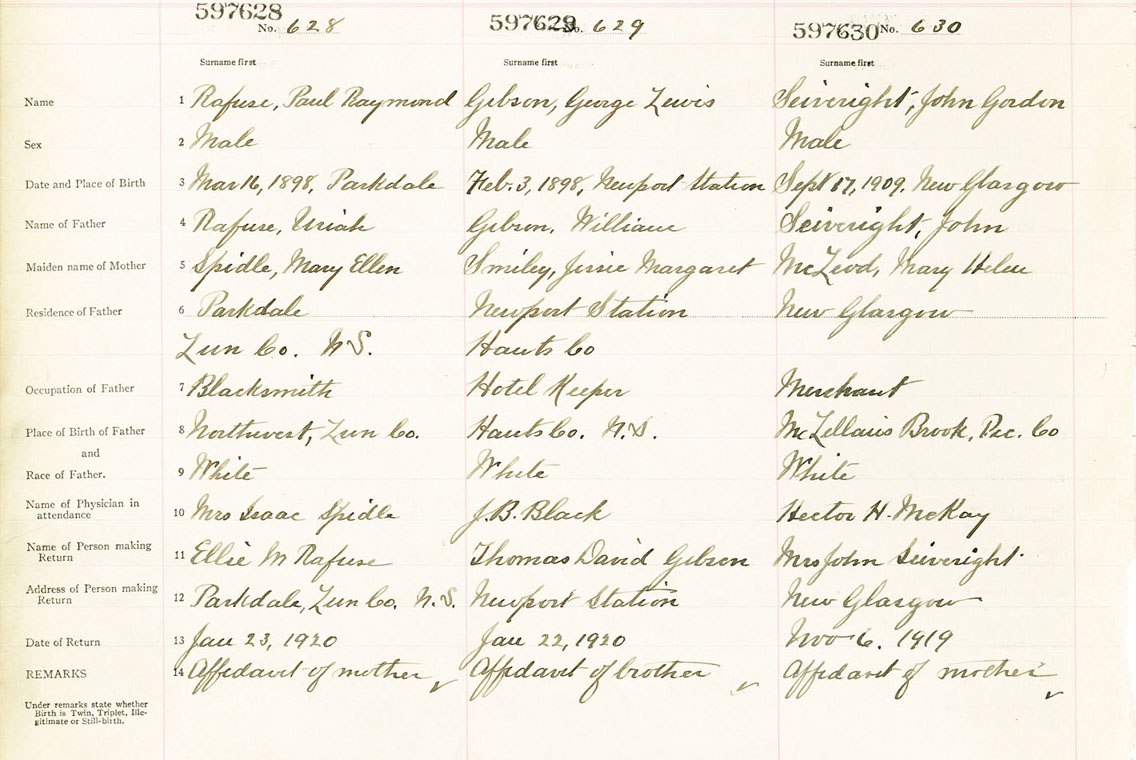 597628 597629 597630
No. 628 No. 629 No. 630
Surname first Surname first Surname first
Name 1 Rafuse, Paul Raymond Gibson, George Lewis Seiveright, John Gordon
Sex 2 Male Male Male
Date and Place of Birth 3 Mar 16, 1898, Parkdale Feb. 3, 1898, Newport Station Sept 17, 1909, New Glasgow
Name of Father 4 Rafuse, Uriah Gibson, William Seiveright, John
Maiden name of Mother 5 Spidle, Mary Ellen Smiley, Jessie Margaret McLeod, Mary Helen
Residence of Father 6 Parkdale Newport Station New Glasgow
Lun Co. N.S. Hants Co
Occupation of Father 7 Blacksmith Hotel Keeper Merchant
Place of Birth of Father 8 Northwest, Lun Co. Hants Co. N.S. McLellans Brook, Pic. Co
and
Race of Father. 9 White White White
Name of Physician in attendance 10 Mrs Isaac Spidle J.B. Black Hector H. McKay
Name of Person making Return 11 Ellie M Rafuse Thomas David Gibson Mrs John Seiveright
Address of Person making Return 12 Parkdale, Lun Co. N.S. Newport Station New Glasgow
Date of Return 13 Jan 23, 1920 Jan 22, 1920 Nov 6. 1919
REMARKS 14 Affidavit of mother Affidavit of brother Affidavit of mother
Under remarks state whether
Birth is Twin, Triplet, Ille-
gitimate or Still-birth.